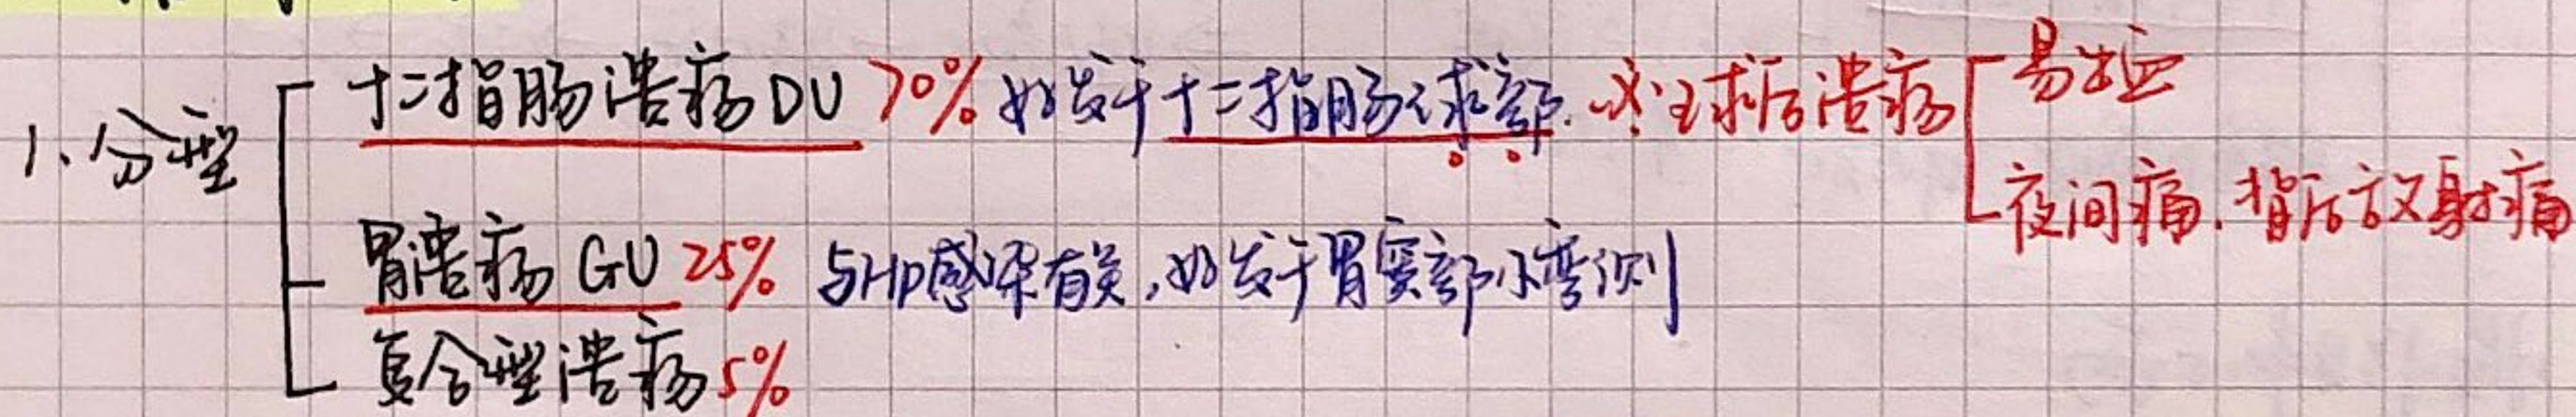 1、分型
十二指肠溃疡DU 70% 好发于十二指肠球部. ※球后溃疡
易出血
夜间痛.背后放射痛
胃溃疡 GU 25% 与HP感染有关,好发于胃窦部小弯侧
复合型溃疡5%